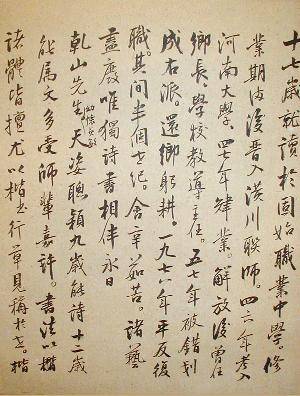 十七歲就讀於固始職業中學。修
業期滿後晋入潢川联师。四三年考入
河南大學、四七年肄業。解放後曾任
鄉長、學校教導主任。五七年被错划
成右派。還鄉躬耕。一九七六年平反復
職。其间半個世纪。含辛茹苦。諸藝
盡廢唯獨詩書相伴永日
乾山先生天姿聰穎九歲能詩十二歲
能属文多受師輩嘉許。書法以楷
諸體皆擅尤以楷书行草見稱於世。楷